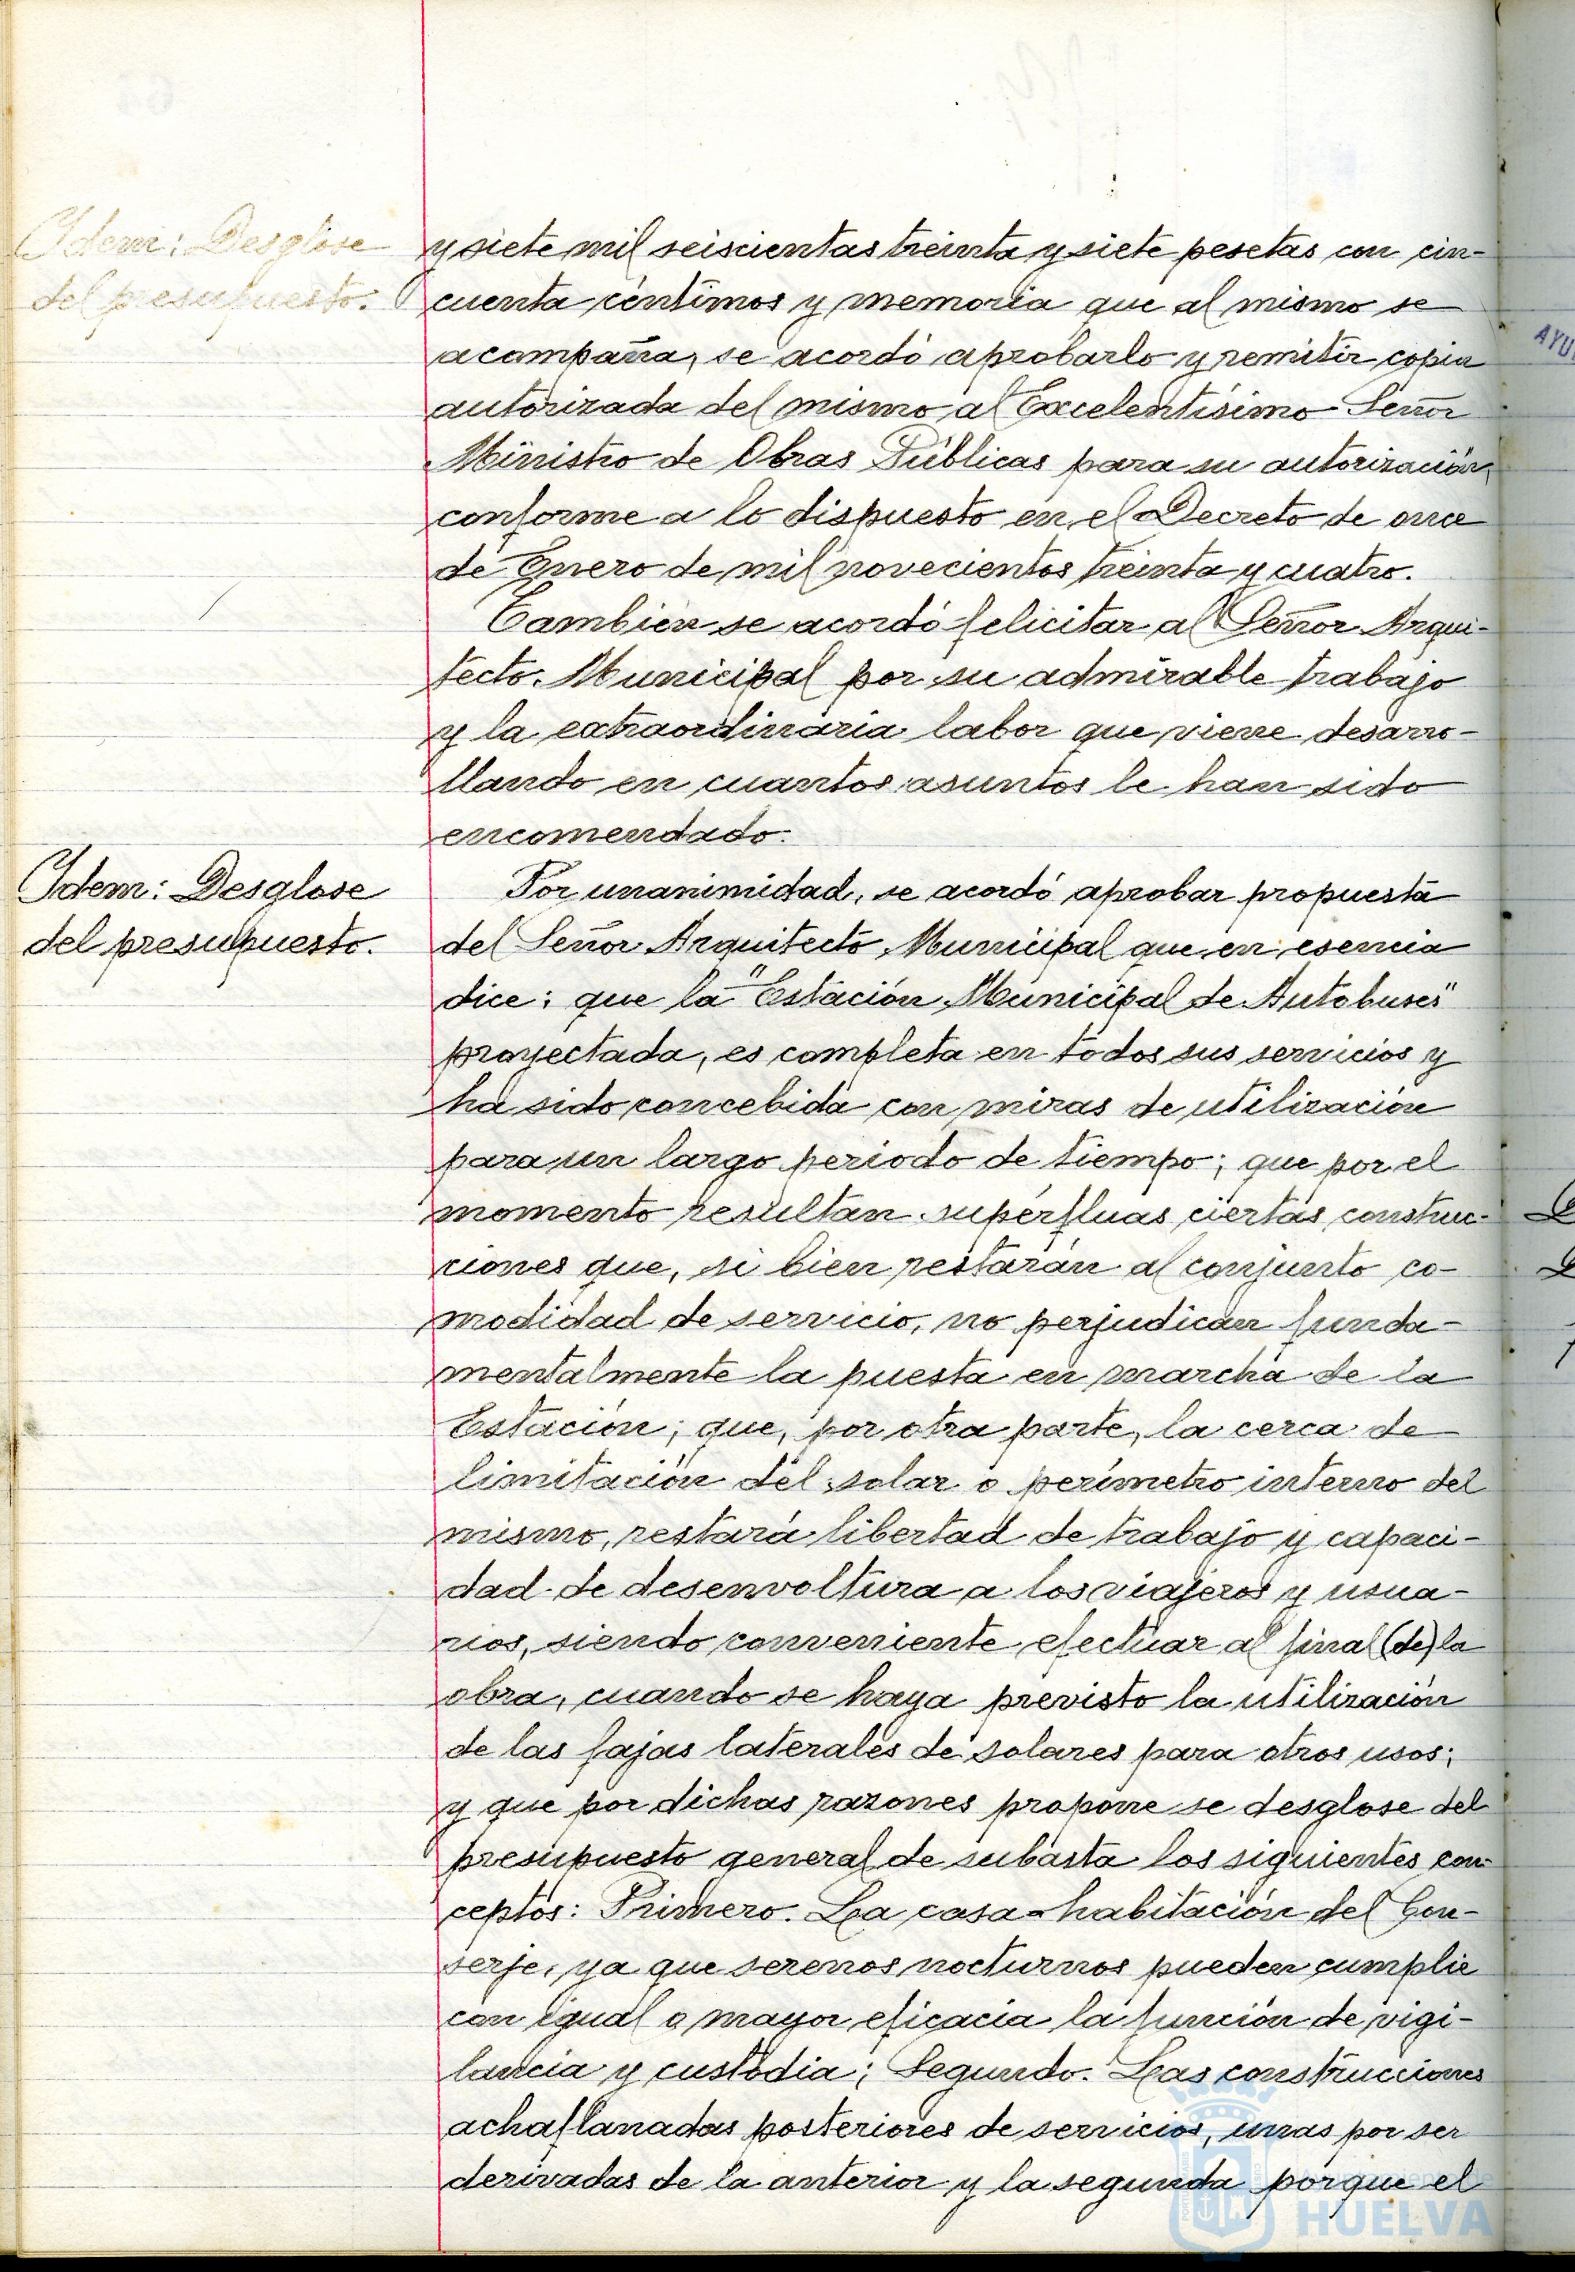 Idem: Desglose
del presupuesto.
y siete mil seiscientas treinta y siete pesetas con cin-
cuenta céntimos y memoria que al mismo se
acompaña, se acordó aprobarlo y remitir copia
autorizada del mismo al Excelentísimo Señor
Ministro de Obras Públicas para su autorización,
conforme a lo dispuesto en el Decreto de once
de Enero de mil novecientos treinta y cuatro.
Tambien se acordó felicitar al Señor Arqui-
tecto Municipal por su admirable trabajo
y la extraordinaria labor que viene desarro-
llando en cuantos asuntos le han sido
encomendado.
Idem: Desglose
del presupuesto.
Por unanimidad, se acordó aprobar propuesta
del Señor Arquitecto Municipal que en esencia
dice: que la "Estación Municipal de Autobuses"
proyectada, es completa en todos sus servicios y
ha sido concebida con miras de utilización
para un largo periodo de tiempo; que por el
momento resultan supérfluas ciertas construc-
ciones que, si bien restarán al conjunto co-
modidad de servicio, no perjudican funda-
mentalmente la puesta en marcha de la
Estación; que, por otra parte, la cerca de
limitación del solar o perímetro interno del
mismo, restará libertad de trabajo y capaci-
dad de desenvoltura a los viajeros y usua-
rios, siendo conveniente efectuar al final (de) la
obra, cuando se haya previsto la utilización
de las fajas laterales de solares para otros usos;
y que por dichas razones propone se desglose del
presupuesto general de subasta los siguientes con-
ceptos: Primero. La casa-habitación del Con-
serje, ya que serenos nocturnos pueden cumplir
con igual o mayor eficacia la función de vigi-
lancia y custodia; Segundo. Las construcciones
achaflanadas posteriores de servicios, unas por ser
derivadas de la anterior y la segunda porque el
Ayuntamiento de
HUELVA
AYU